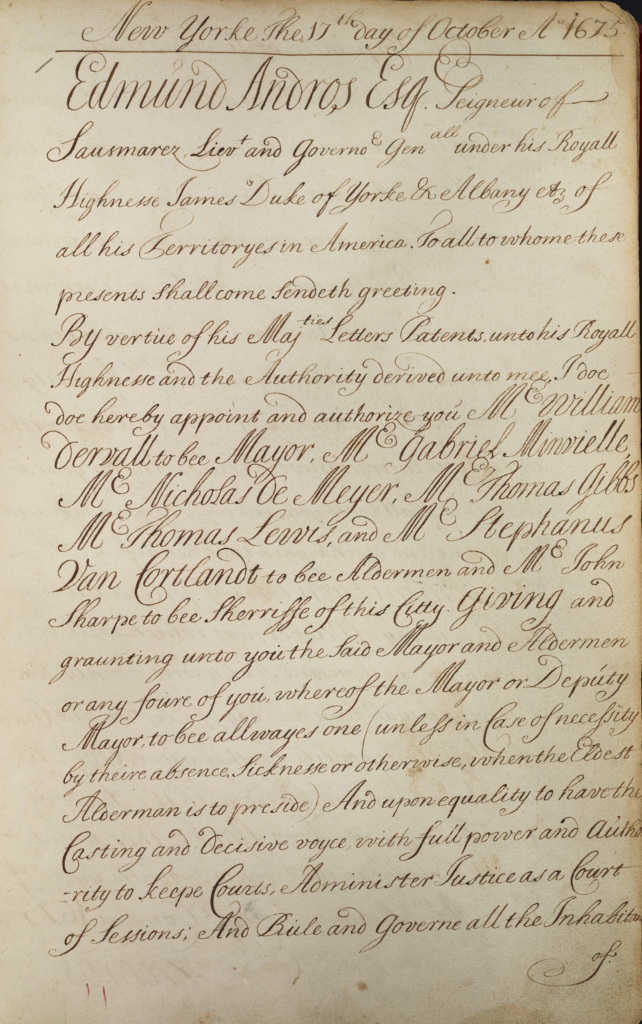 New Yorke The 17th day of October Ao 1675
Edmund Andros, Esqr. Seigneur of
Sausmarez, Lievt and Governor Genall under his Royall
Highnesse James Duke of Yorke & Albany etc of
all his Territoryes in America. To all to whome these
presents shall come sendeth greeting.
By vertue of his Majties Letters Patents, unto his Royall
Highnesse and the Authority derived unto mee, I doe
doe hereby appoint and authorize you Mr William
Dervall to bee Mayor, Mr Gabriel Minvielle,
Mr Nicholas De Meyer, Mr Thomas Gibbs
Mr Thomas Lewis, and Mr Stephanus
Van Cortlandt to bee Aldermen and Mr John
Sharpe to bee Sherriffe of this Citty. Giving and
graunting unto you the said Mayor and Aldermen
or any foure of you, whereof the Mayor or Deputy
Mayor, to bee allwayes one (unless in Case of necessity
by theire absence, Sicknesse or otherwise, when the Eldest
Alderman is to preside) And upon equality to have the
Casting and decisive voyce, with full power and Autho
-rity to keepe Courts, Administer Justice as a Court
of Sessions; And Rule and Governe all the Inhabitan
of